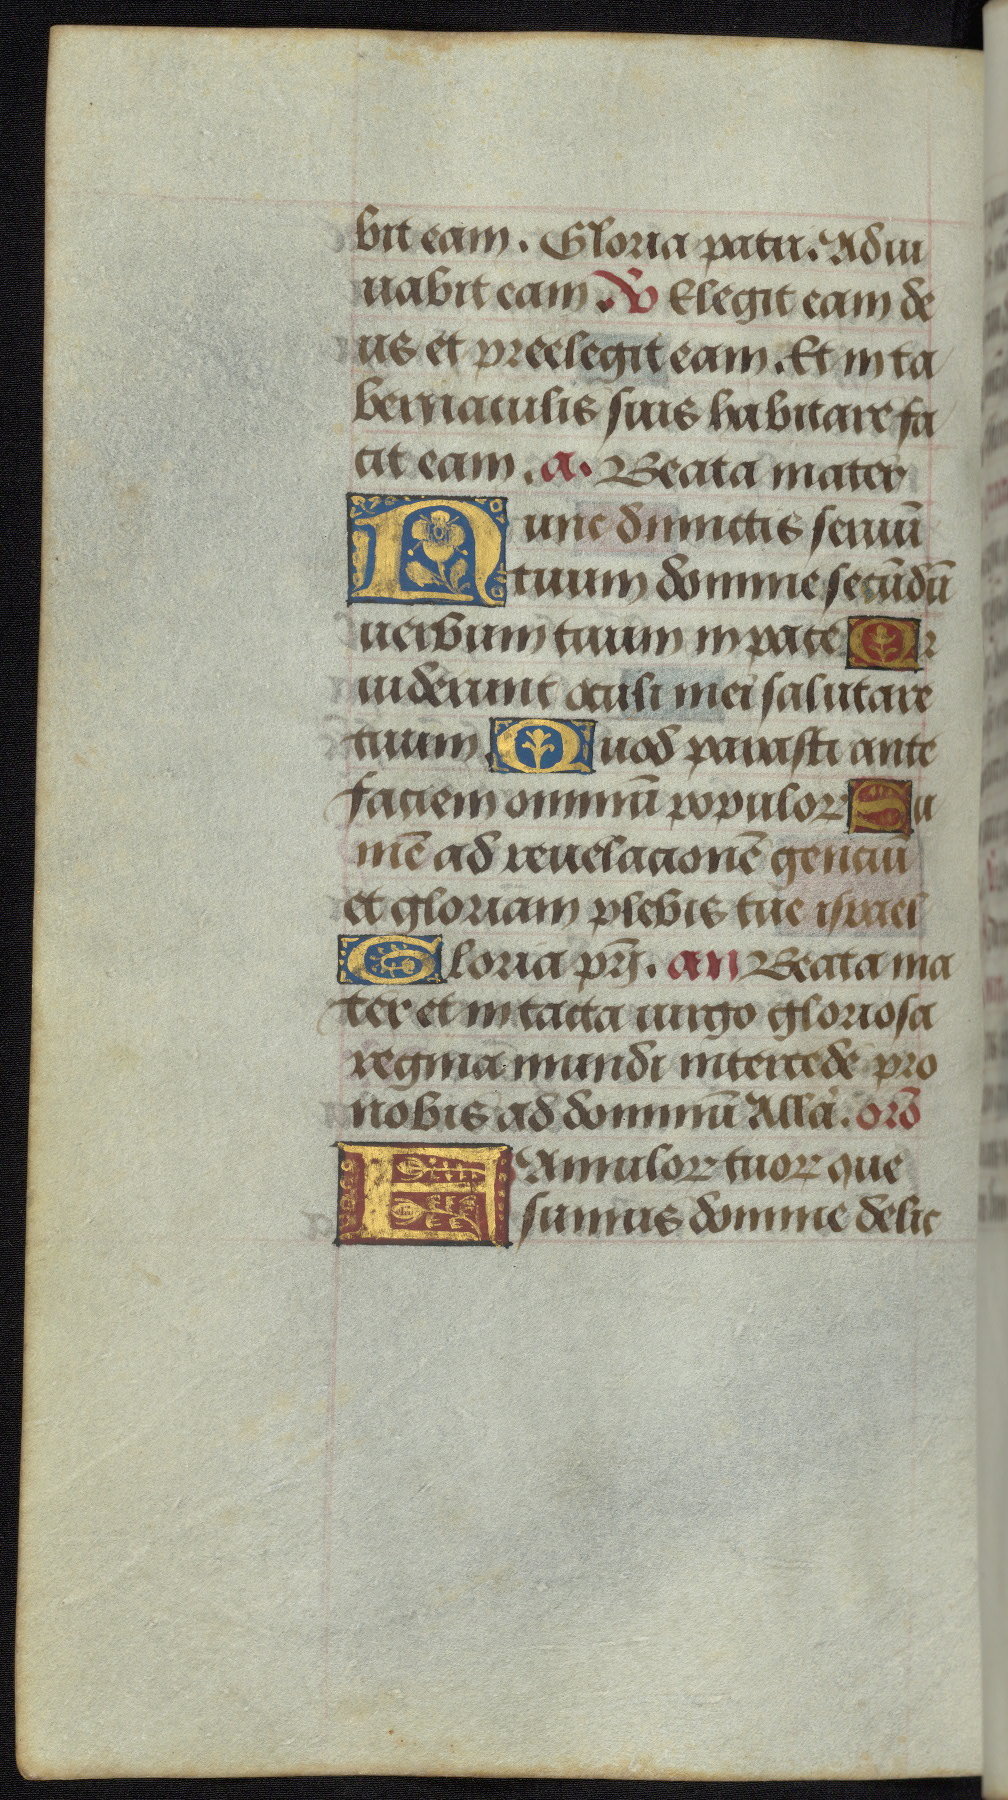 bit eam. Gloria patri. Adiu
uabit eam. ℣ Elegit eam de
us et preelegit eam. Et in ta
bernaculis suis habitare fa
cit eam. a. Beata mater
Nunc dimictis seruū
tuum domine secūdū
uerbum tuum in pace Qꝛ
uiderunt oculi mei salutare
tuum. Quod parasti ante
faciem omniū populoꝝ Lu
mē ad reuelacionē genciū
et gloriam plebis tue israel
Gloria prī. an Beata ma
ter et intacta uirgo gloriosa
regina mundi intercede pro
nobis ad dominū Allā. orō
FAmuloꝝ tuoꝝ que
sumus domine delic